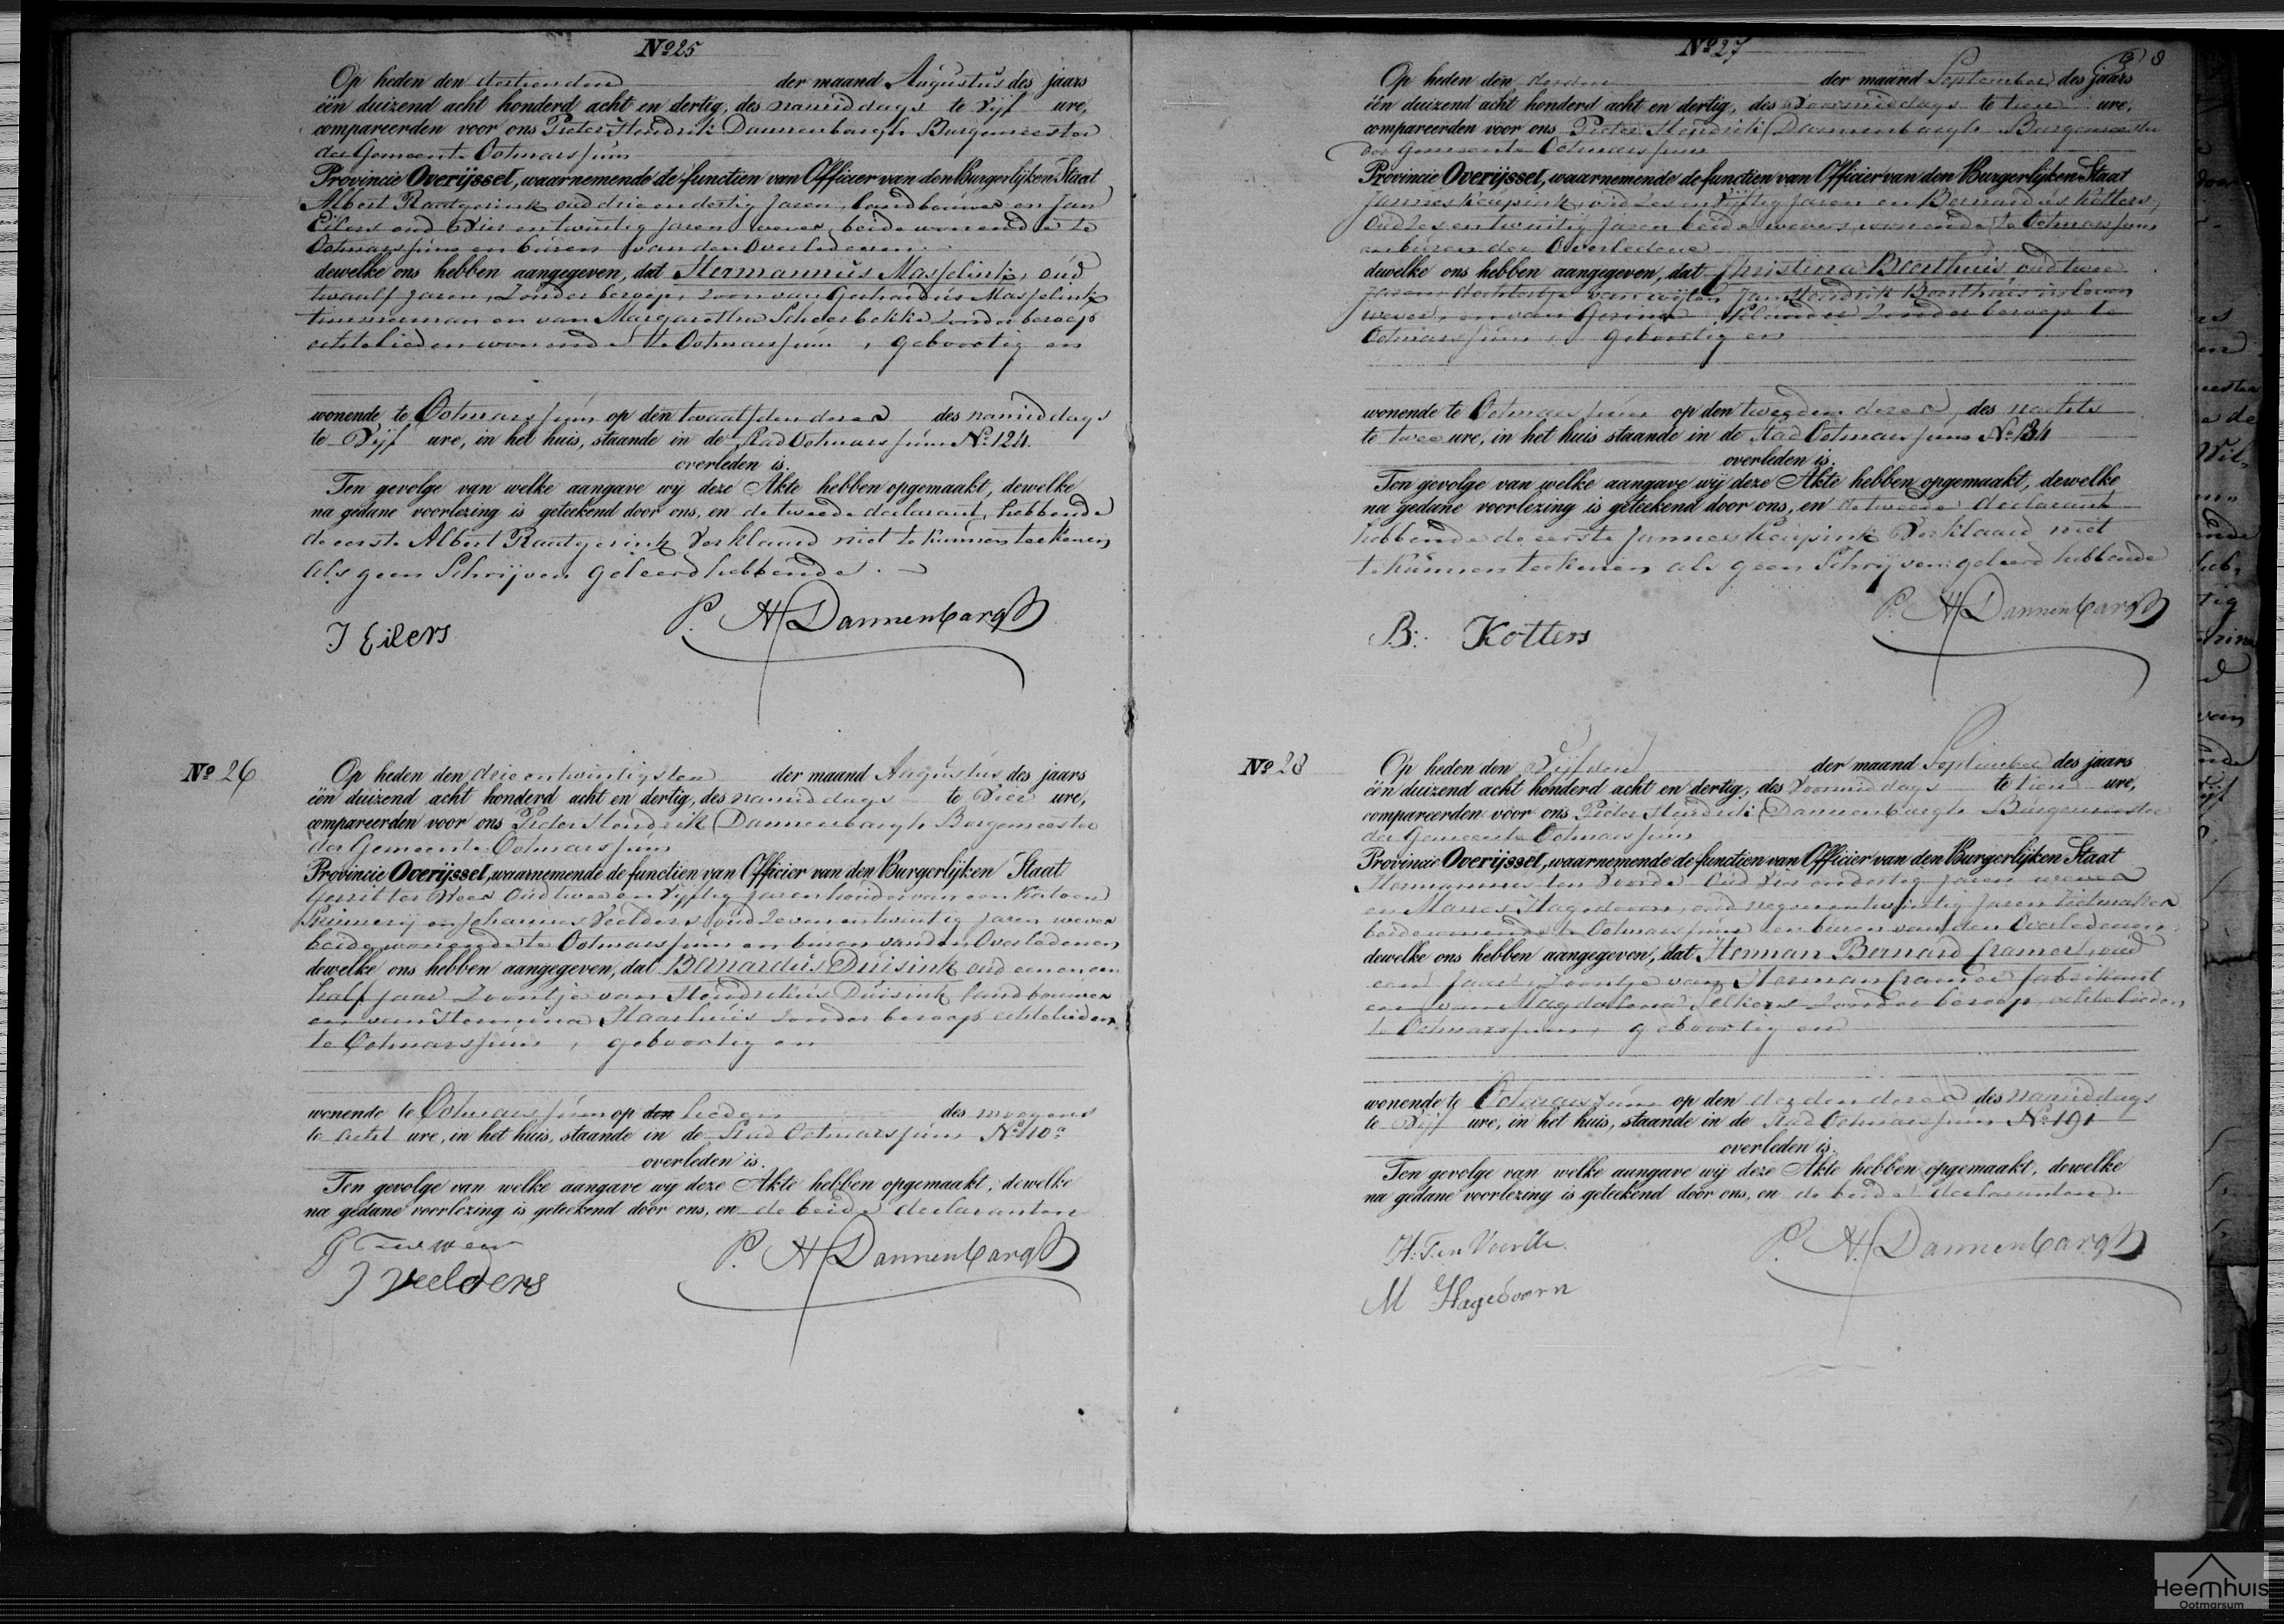 Nº 25
Op heden den dertienden der maand Augustus des jaars
één duizend acht honderd acht en dertig, des namiddags te Vijf ure,
compareerden voor ons Pieter Hendrik Dannenbargh Burgemeester
der Gemeente Ootmarssum
Provincie Overijssel, waarnemende de functien van Officier van den Burgerlijken Staat
Albert Raatgerink oud drie en dertig Jaren, landbouwer en Jan
Eilers oud Vier en twintig Jaren wever, beide wonende te
Ootmarssum en buren van den Overledenen
dewelke ons hebben aangegeven, dat Hermannus Masselink, oud
twaalf Jaren, Zonder beroep, zoon van Gerhardus Masselink
timmerman en van Margaretha Scheerbekke zonder beroep
echtelieden wonende te Ootmarssum, geboortig en
wonende te Ootmarssum op den twaalfden dezer des namiddags
te Vijf ure, in het huis, staande in de Stad Ootmarssum Nº 124.
overleden is.
Ten gevolge van welke aangave wy deze Akte hebben opgemaakt, dewelke
na gedane voorlezing is geteekend door ons, en de tweede declarant, hebbende
de eerste Albert Raatgerink Verklaard niet te kunnen teekenen
als geen Schrijven geleerd hebbende.
P. H. Dannenbargh
J Eilers
Nº 26
Op heden den drieentwintigsten der maand Augustus des jaars
één duizend acht honderd acht en dertig, des namiddags te Vier ure,
compareerden voor ons Pieter Hendrik Dannenbargh Burgemeester
der Gemeente Ootmarssum
Provincie Overijssel, waarnemende de functien van Officier van den Burgerlijken Staat
Gerrit ter Weer Oud twee en Vyftig Jaren houder van een Katoen
Spinnerij en Johannes Veelders oud Zeven en twintig Jaren wever
beide wonende te Ootmarssum en buren van den Overledenen
dewelke ons hebben aangegeven, dat Bernardus Duisink oud een en een
half jaar Zoontje van Hendrikus Duisink landbouwer
en van Hermina Haarhuis zonder beroep echtelieden
te Ootmarssum, geboortig en
wenende te Ootmarssum op den heden des morgens
te acht ure, in het huis, staande in de Stad Ootmarssum Nº 110
overleden is.
Ten gevolge van welke aangave wy deze Akte hebben opgemaakt, dewelke
na gedane voorlezing is geteekend door ons, en de beide declaranten
P. H. Dannenbargh
J Veelders
Nº 27
8
Op heden den derden der maand September des jaars
één duizend acht honderd acht en dertig, des Voormiddags te tien ure,
compareerden voor ons Pieter Hendrik Dannenbargh Burgemeester
der Gemeente Ootmarssum
Provincie Overijssel, waarnemende de functien van Officier van den Burgerlijken Staat
Jannes Keupink, oud Zes en Vijftig Jaren en Bernardus Kotters,
Oud Zes en twintig Jaren beide wevers wonende te Ootmarssum
en buren der Overledene
dewelke ons hebben aangegeven, dat Christina Boerthuis oud twee
Jaren, dochtertje van wijlen Jan Hendrik Boerthuis in leven
wever, en van Zonder beroep te
Ootmarssum, geboortig en
wonende te Ootmarssum op den tweeden dezer, des nachts
te twee ure, in het huis staande in de Stad Ootmarssum Nº 134
overleden is.
Ten gevolge van welke aangave wij deze Akte hebben opgemaakt, dewelke
na gedane voorlezing is geteekend door ons, en de tweede declarant
hebbende de eerste Jannes Keupink Verklaard niet
te kunnen teekenen als geen Schrijven geleerd hebbende
P. H. Dannenbargh
B. Kotters
Nº 28
Op heden den Vijfden der maand September des jaars
één duizend acht honderd acht en dertig, des Voormiddags te tien ure,
compareerden voor ons Pieter Hendrik Dannenbargh Burgemeester
der Gemeente Ootmarssum
Provincie Overijssel, waarnemende de functien van Officier van den Burgerlijken Staat
Hermannus ten Voorde Oud Vier en dertig Jaren wever
en Manes Hagedoorn, oud negen en twintig Jaren
beide wonende te Ootmarssum en buren van den Overledenen
dewelke ons hebben aangegeven, dat Herman Bernard Cramer, oud
een Jaar, Zoontje van Herman Cramer fabrikant
en van Magdalena zonder beroep, echtelieden
te Ootmarssum, geboortig en
wonende te Ootmarssum op den derden dezer des namiddags
te Vijf ure, in het huis, staande in de Stad Ootmarssum Nº 191
overleden is.
Ten gevolge van welke aangave wij deze Akte hebben opgemaakt, dewelke
na gedane voorlezing is geteekend door ons, en de beide declaranten
P. H. Dannenbargh
H. Ten Voorde
M Hagedoorn
Heemhuis
Ootmarsum